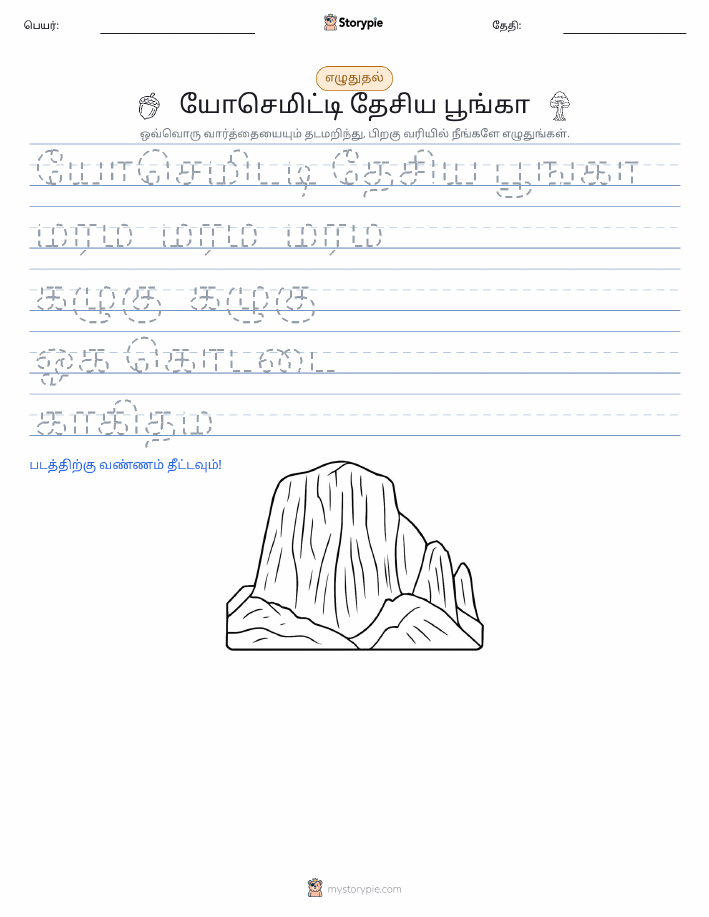 பெயர்:
Storypie
தேதி:
எழுதுதல்
யோசெமிட்டி தேசிய பூங்கா
ஒவ்வொரு வார்த்தையையும் தடமறிந்து, பிறகு வரியில் நீங்களே எழுதுங்கள்.
யோசெமிட்டி தேசிய பூங்கா
மரம் மரம் மரம்
கழுகு கழுகு
ஓக் கொட்டை
காகிதம்
படத்திற்கு வண்ணம் தீட்டவும்!
mystorypie.com